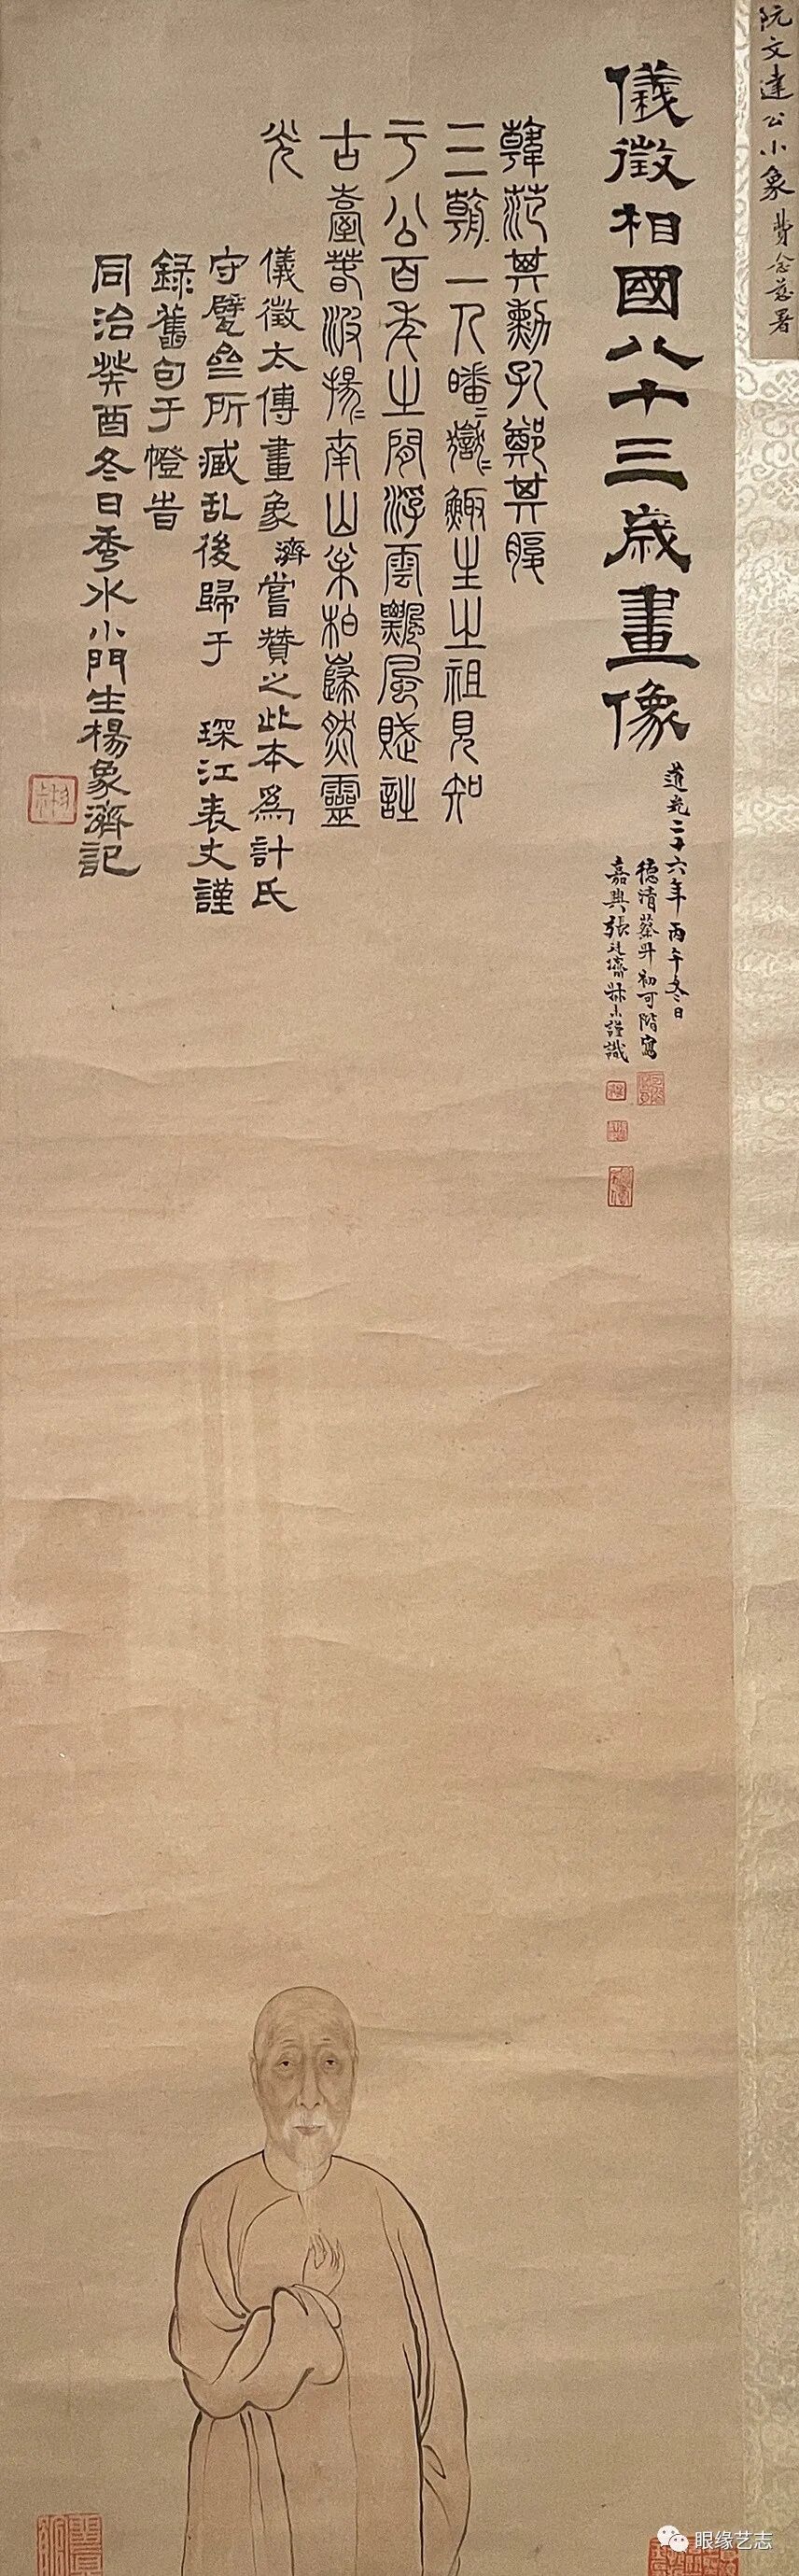 阮文達公小象 費念慈署
儀徵相國八十三歲畫像
道光二十六年丙午冬日
德清蔡升初可階寫
嘉興張廷濟叔未謹識
韓范其勳孔鄭其
三朝一人皤=嶽=鯫生之祖見知
于公百年之間浮雲飄風
古臺揚=南山松柏巋然靈
光
儀徵太傅畫象濟嘗贊之此本爲計氏
守甓所臧乱後歸于 琛江表丈謹
錄舊句于燈昔
同治癸酉冬日秀水小門生楊象濟記
眼缘艺志